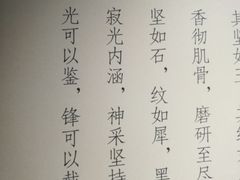 其坚如玉，其
香彻肌骨，磨研至尽
坚如石，纹如犀，黑
寂光内涵，神采坚持
光可以鉴，锋可以截